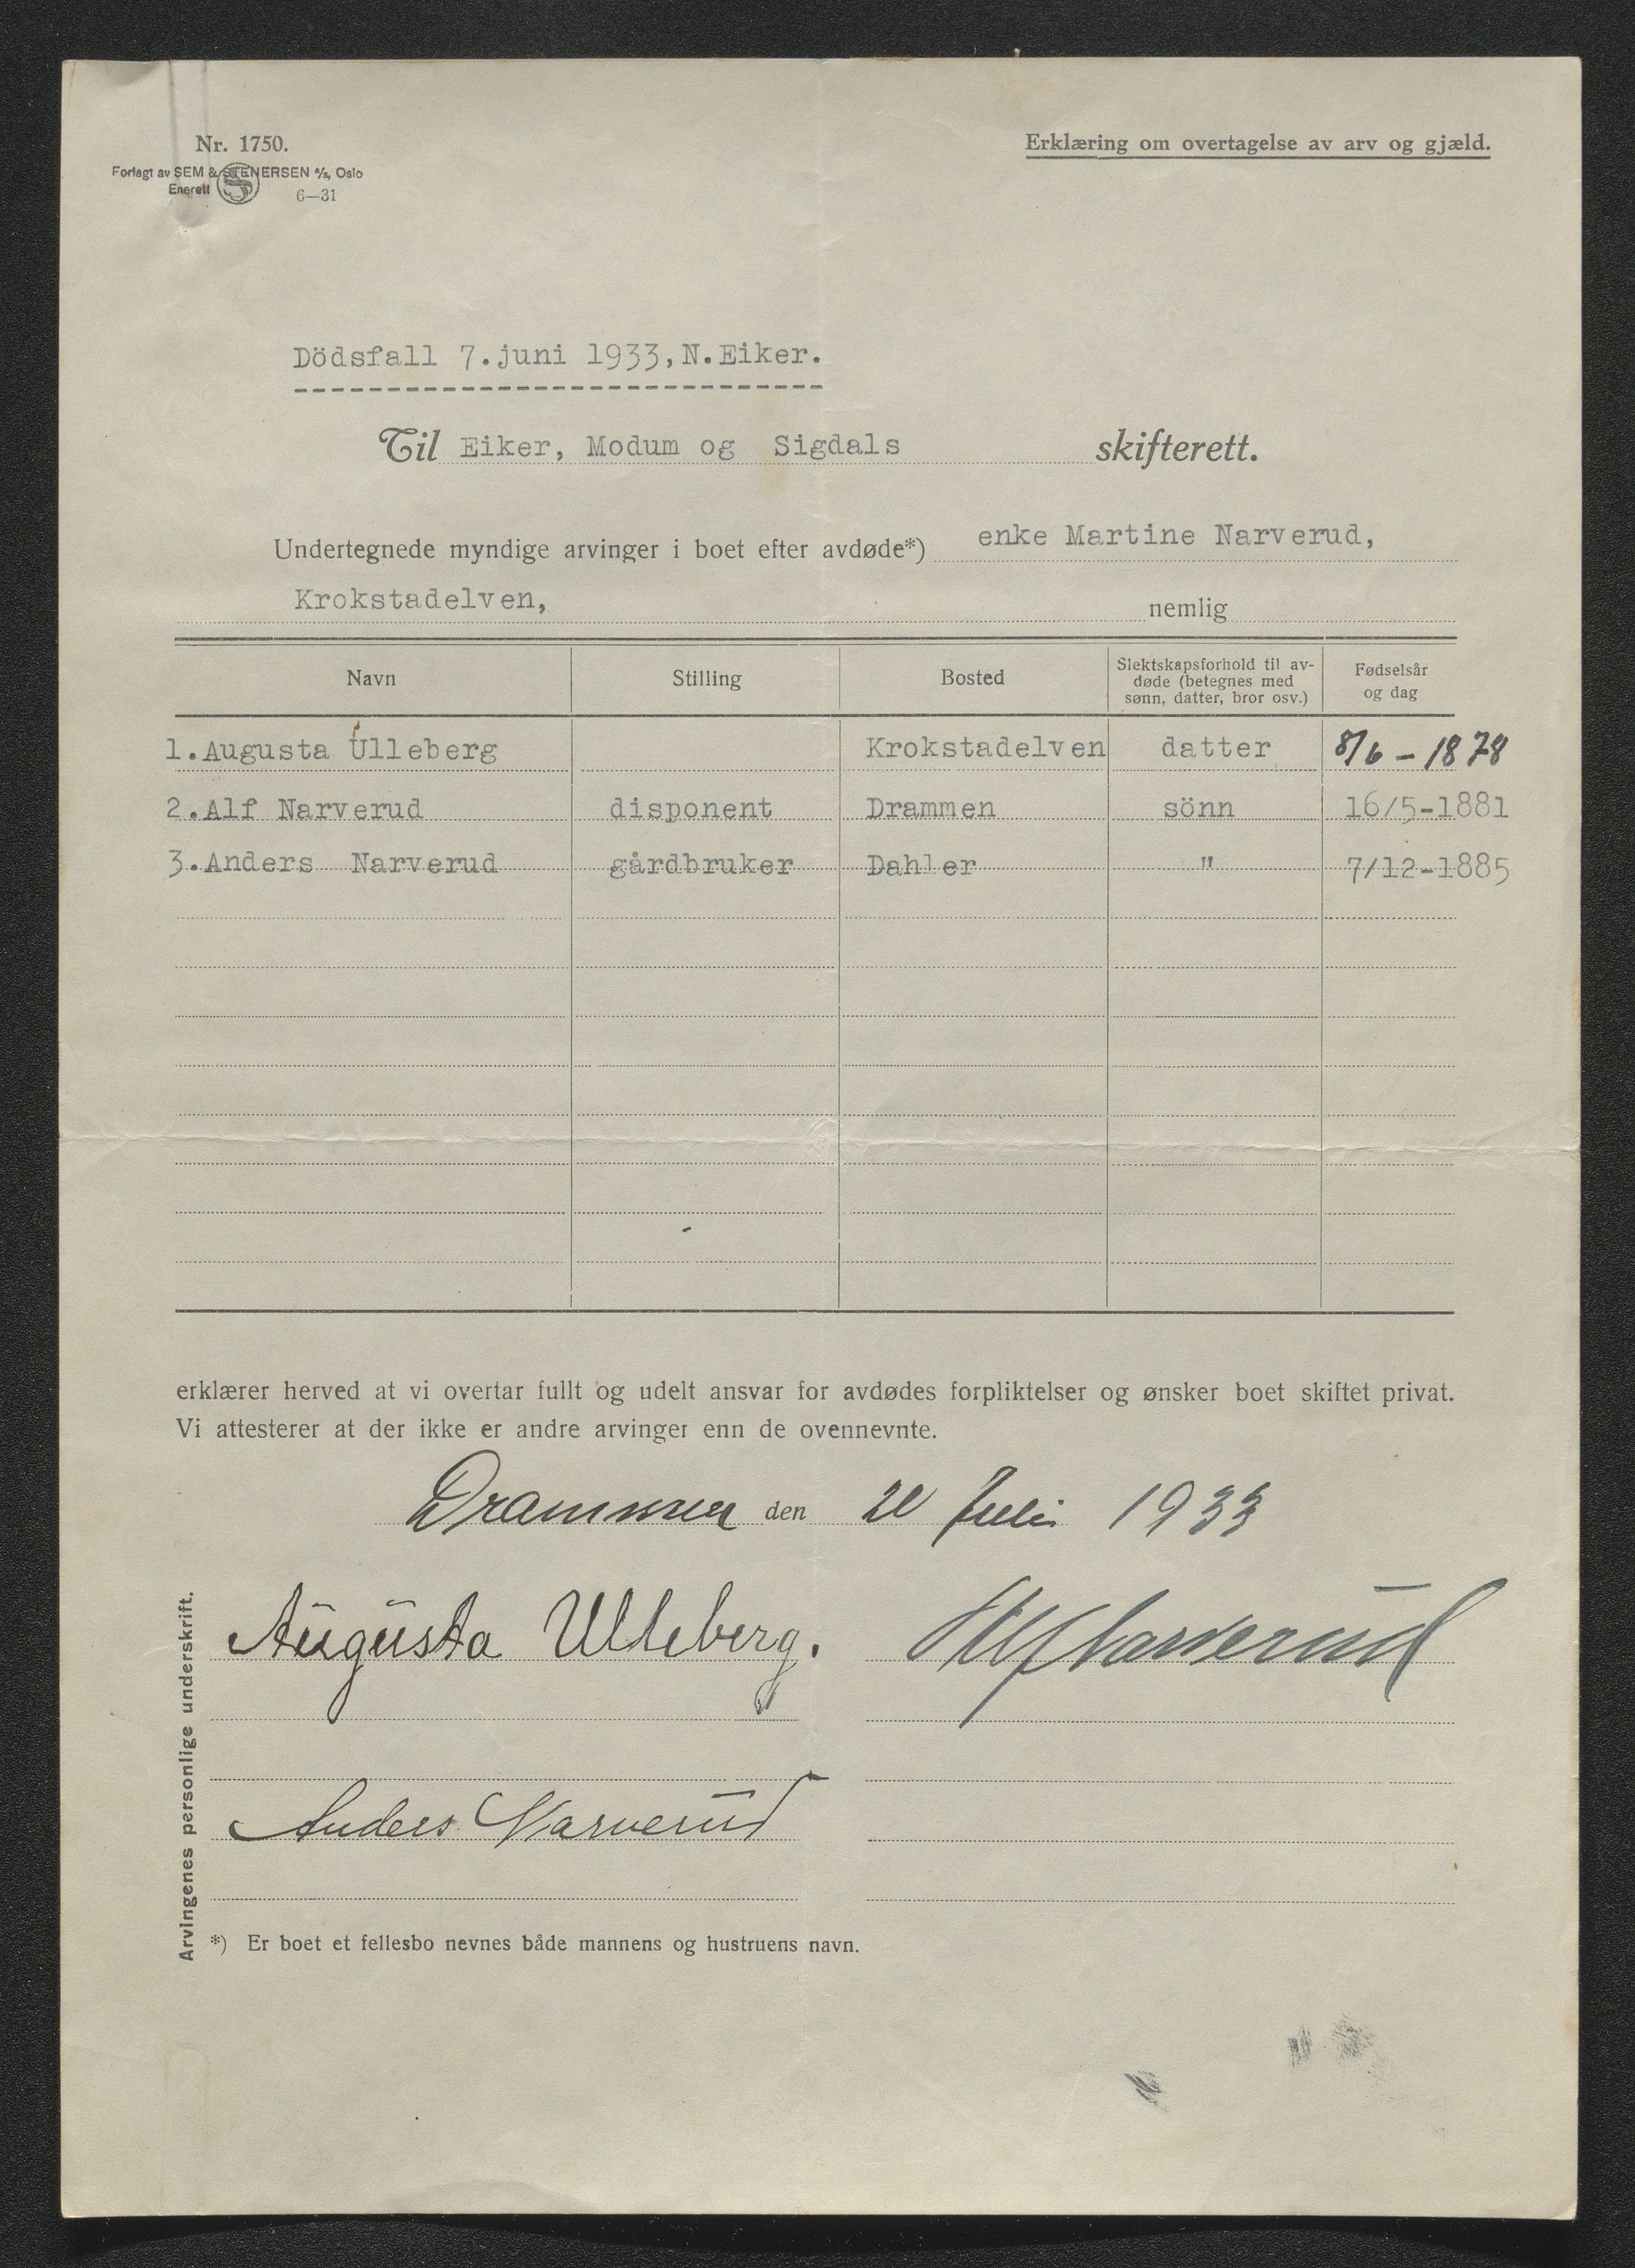 Nr. 1750.
Forlagt av SEM & STENERSEN A/S, Oslo
Enerett 6—31
Erklæring om overtagelse av arv og gjæld.
Dödsfall 7.juni 1933,N.Eiker.
Til Eiker, Modum og Sigdals skifterett.
Undertegnede myndige arvinger i boet efter avdøde*) enke Martine Narverud,
Krokstadelven, nemlig
Navn Stilling Bosted Slektskapsforhold til avdøde (betegnes med sønn, datter, bror osv.) Fødselsår og dag
1.Augusta Ulleberg Krokstadelven datter 8/6 - 1878
2.Alf Narverud disponent Drammen sönn 16/5-1881
3.Anders Narverud gårdbruker Dahler " 7/12-1885
erklærer herved at vi overtar fullt og udelt ansvar for avdødes forpliktelser og ønsker boet skiftet privat.
Vi attesterer at der ikke er andre arvinger enn de ovennevnte.
Drammen den Juli 1933
Arvingenes personlige underskrift.
Augusta Ulleberg. Alf Narverud
Anders Narverud
*) Er boet et fellesbo nevnes både mannens og hustruens navn.